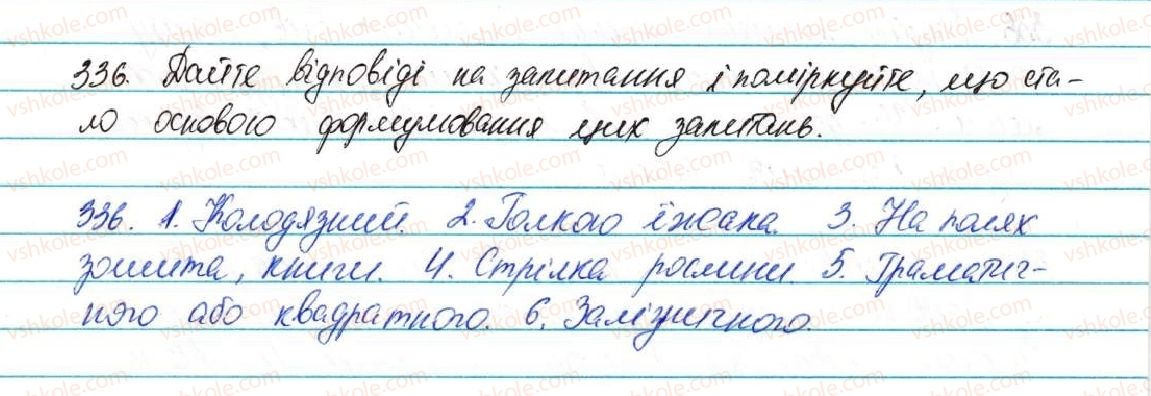 336. Дайте відповіді на запитання і поміркуйте, що ста-
ло основою формумовання цих запитань.
336. 1. Колодязний. 2. Голкою їжака. 3. На полях
зошита, книги. 4. Стрілка рослини. 5. Граматич-
ного або квадратного. 6. Залізничного.